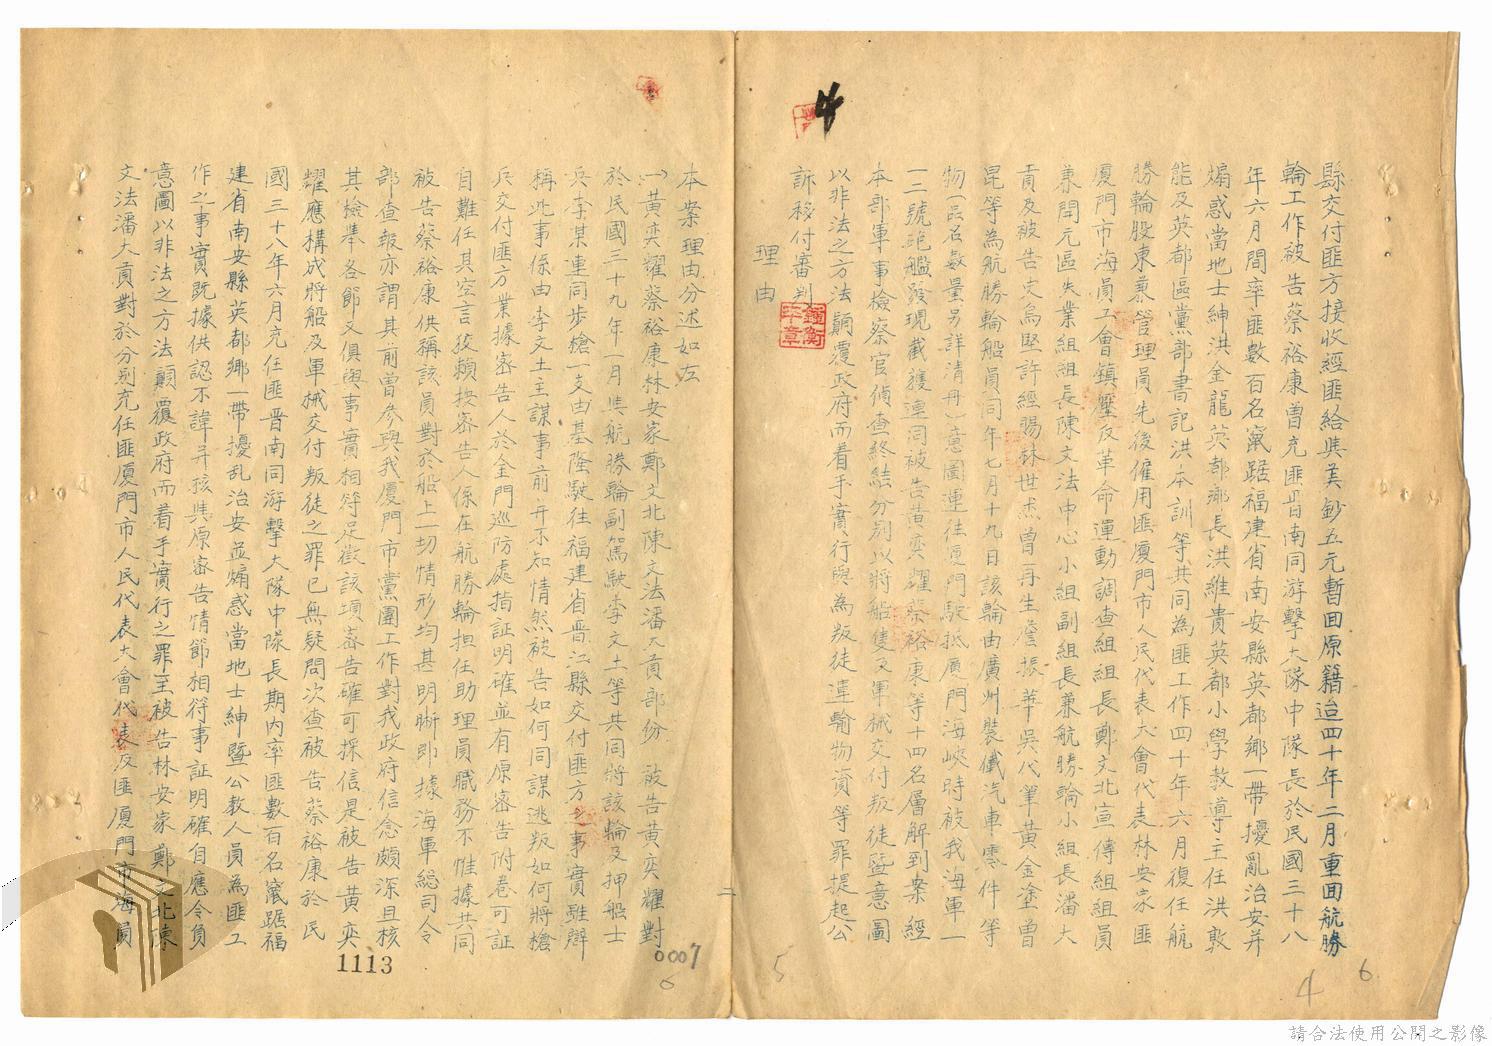 4
縣交付匪方接收經匪給與美鈔五元暫囬原籍迨四十年二月重囬航勝
輪工作被告蔡裕康曾充匪晋南同游擊大隊中隊長於民國三十八
年六月間率匪數百名竄踞福建省南安縣英都鄉一帶擾亂治安并
煽惑當地士紳洪金龍英都鄉長洪維貴英都小學教導主任洪敦
能及英都區黨部書記洪本訓等共同為匪工作四十年六月復任航
勝輪股東兼管理員先後僱用匪廈門市人民代表大會代表林安家匪
廈門市海員工會鎮壓反革命運動調查組組長鄭文北宣傳組組員
兼開元區失業組組長陳文法中心小組副組長兼航勝輪小組長潘大
貢及被告史烏堅許經賜林世杰曾再生詹振華吳代筆黃金塗曾
昆等為航勝輪船員同年七月十九日該輪由廣州裝儎汽車零件等
物(品名數量另詳清冊)意圖運往廈門駛抵廈門海峽時被我海軍一
一二號砲艦發現截獲連同被告黃奕耀蔡裕康等十四名層解到案經
本部軍事檢察官偵查終結分別以將船隻及軍械交付叛徒暨意圖
以非法之方法顛覆政府而着手實行與為叛徒運輸物資等罪提起公
訴移付審判
理由
本案理由分述如左
(一)黃奕耀蔡裕康林安家鄭文北陳文法潘大貢部份 被告黃奕耀對
於民國三十九年一月與航勝輪副駕駛李文土等共同將該輪及押船士
兵李某連同步槍一支由基隆駛往福建省晋江縣交付匪方之事實雖辯
稱此事係由李文土主謀事前并不知情然被告如何同謀逃叛如何將槍
兵交付匪方業據密告人於金門巡防處指証明確並有原密告附卷可証
自難任其空言狡賴按密告人係在航勝輪担任助理員職務不惟據共同
被告蔡裕康供稱該員對於船上一切情形均甚明晰即據海軍總司令
部查報亦謂其前曾參與我廈門市黨團工作對我政府信念頗深且核
其檢舉各節又俱與事實相符足徵該項密告確可採信是被告黃奕
耀應構成將船及軍械交付叛徒之罪已無疑問次查被告蔡裕康於民
國三十八年六月充任匪晋南同游擊大隊中隊長期內率匪數百名竄踞福
建省南安縣英都鄉一帶擾乱治安並煽惑當地士紳暨公教人員為匪工
作之事實既據供認不諱并核與原密告情節相符事証明確自應令負
意圖以非法之方法顛覆政府而着手實行之罪至被告林安家鄭文北陳
文法潘大貢對於分別充任匪廈門市人民代表大會代表及匪廈門市海員
二
0007
1113
6
5
4
6
請合法使用公開之影像